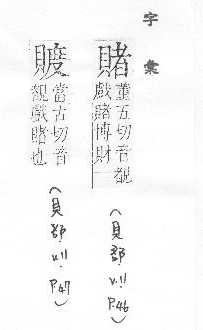 字彙
賭
董五切音覩
戲賭博財
(貝部.v.11 P.46)
當古切音
覩戲賭也
(貝部.v.11 P.47)